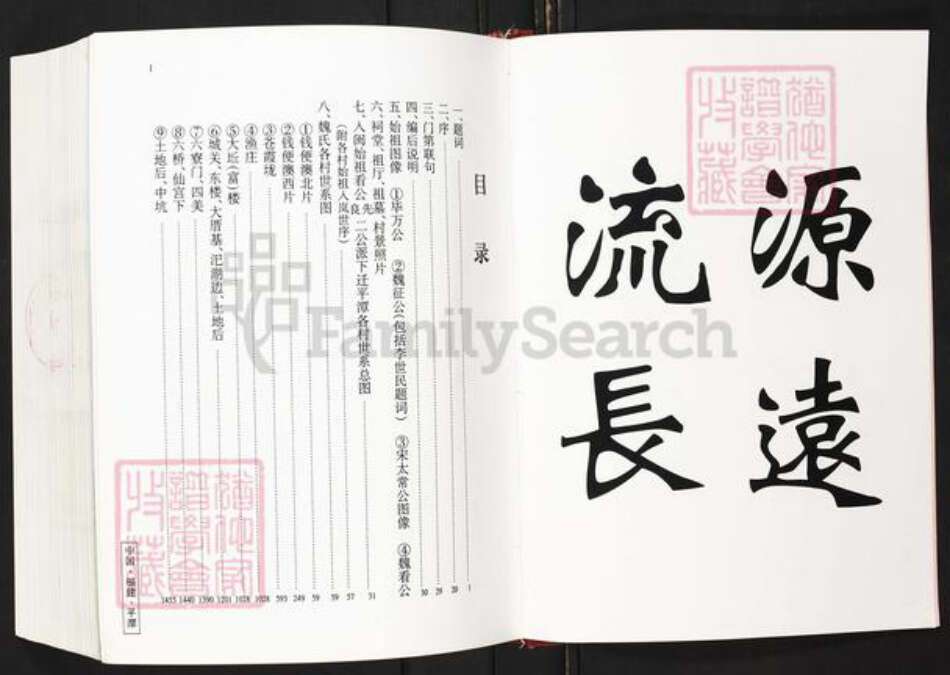 源遠
流長
目录
一、题词 1
二、序 20
三、门第联句 29
四、编后说明 30
五、始祖图像 ①毕万公 ②魏征公(包括李世民题词) ③宋太常公图像 ④魏看公
六、祠堂、祖厅、祖墓、村景照片 31
七、入闽始祖看公良先二公派下迁平潭各村世系总图
(附各村始祖入岚世序) 57
八、魏氏各村世系图 59
①钱便澳北片 59
②钱便澳西片 249
③苍霞垅 593
④渔庄 1028
⑤大坵(富)楼 1028
⑥城关、东楼、大厝基、汜澳边、土地后 1201
⑦六寮门、四美 1390
⑧六桥、仙宫下 1440
⑨土地后、中坑 1455
1
中国·福建·平潭
FamilySearch